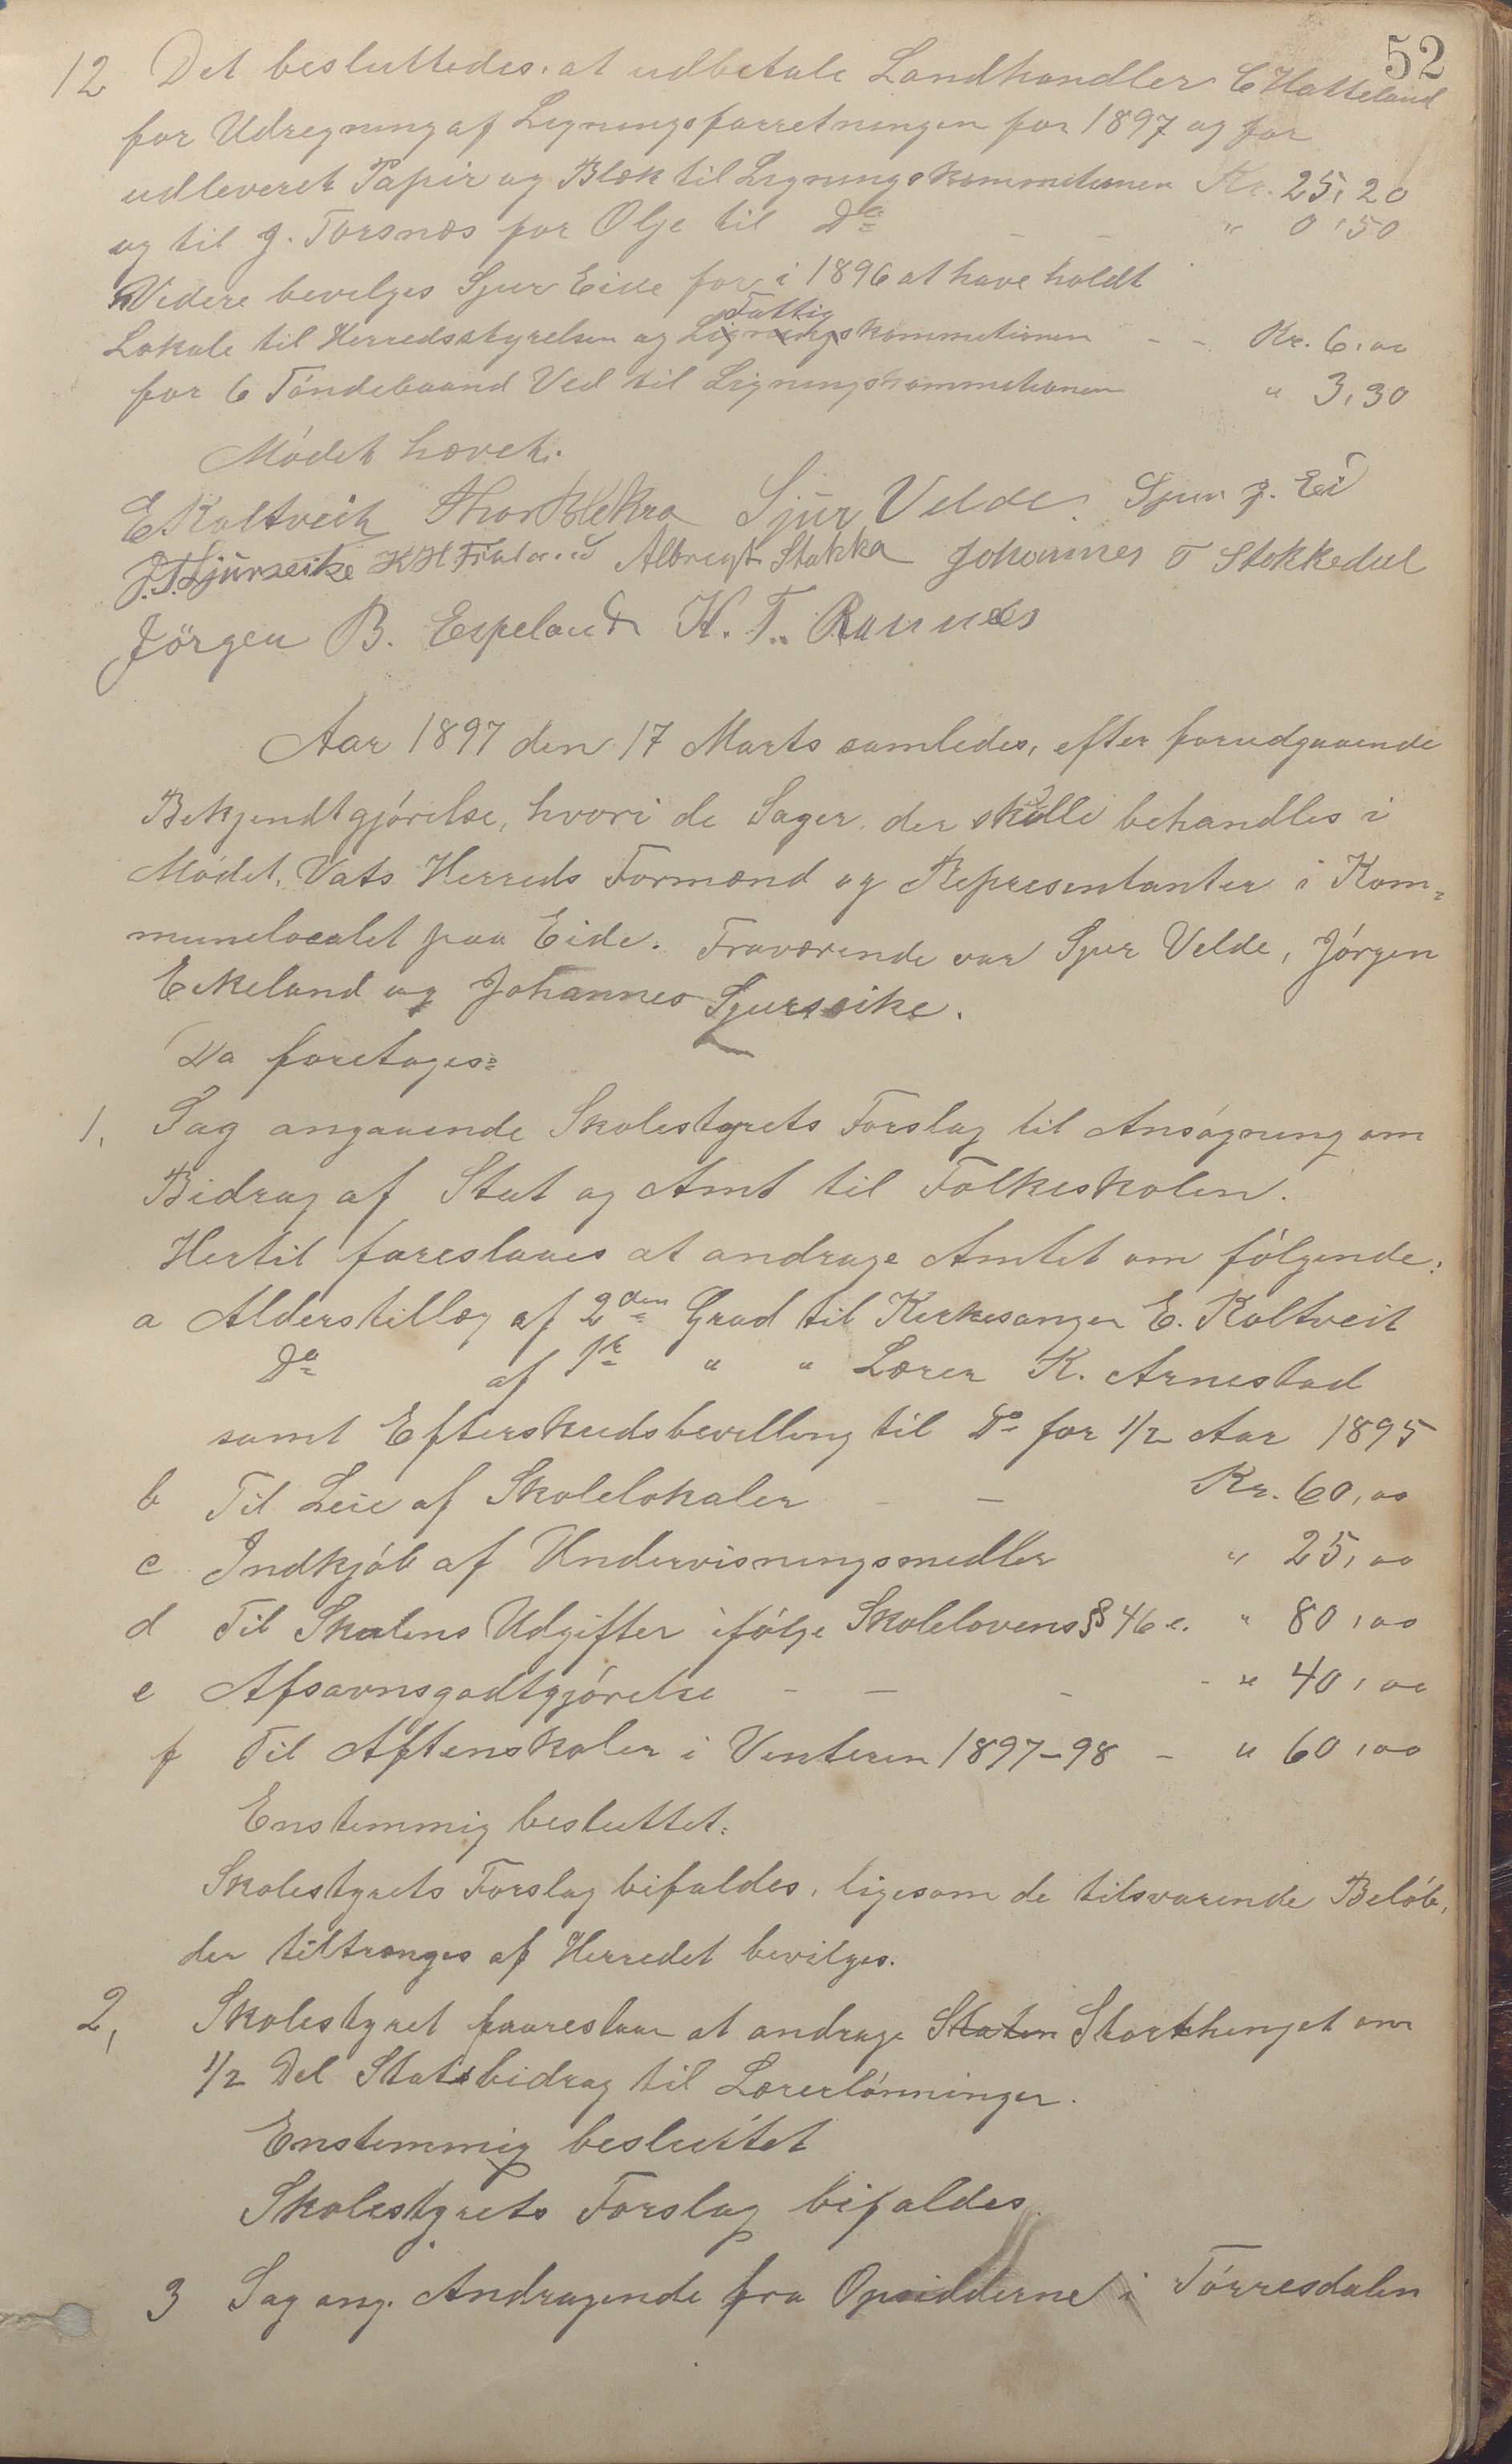 52
12 Det besluttedes at udbetale Landhandler C Hatteland
for Udregning af Ligningsforretningen for 1897 og for
udleveret Papir og Blæk til Ligningskommitionen Kr. 25,20
og til J. Torsnæs for Olje til Do — — " 0,50
Videre bevilges Sjur Eide for i 1896 at have holdt
Fattig
Lokale til Herredsstyrelsen og Ligningskommitionen - - Kr. 6,00
for 6 Töndebaand Ved til Ligningskommitionen " 3,30
Mödet hævet.
E Kaltveit Thor Blekra Sjur Velde. Sjur J. Ei
J.T. Sjurseike K H Frøland Albregt Stakka Johannes T Stokkedal
Jörgen B. Espeland K. T. Ramnæs
Aar 1897 den 17 Marts samledes, efter forudgaaende
Bekjendtgjörelse, hvori de Sager, der skulle behandles i
Mödet, Vats Herreds Formænd og Repræsentanter i Kom=
munelocalet paa Eide. Fraværende var Sjur Velde, Jörgen
Eikeland og Johannes Sjurseike.
Da foretoges:
1, Sag angaaende Skolestyrets Forslag til Ansögning om
Bidrag af Stat og Amt til Folkeskolen.
Hertil foreslaaes at andrage Amtet om fölgende:
a Alderstillæg af 2den Grad til Kirkesanger E. Kaltveit
Do af 1te " " Lærer K. Arnestad
samt Efterskudsbevilling til Do for 1/2 Aar 1895
b Til Leie af Skolelokaler — — Kr. 60,00
c Indkjöb af Undervisningsmidler " 25,00
d Til Skolens Udgifter ifölge Skolelovens § 46 c. " 80,00
e Afsavnsgodtgjörelse - — - - " 40,00
f Til Aftenskoler i Vinteren 1897-98 - " 60,00
Enstemmig besluttet:
Skolestyrets Forslag bifaldes, ligesom de tilsvarende Belöb,
der tiltrænges af Herredet bevilges.
2, Skolestyret faareslaar at andrage Staten Storthinget om
1/2 Del Statsbidrag til Lærerlönninger.
Enstemmig besluttet
Skolestyrets Forslag bifaldes.
3 Sag ang. Andragende fra Opsidderne i Törresdalen